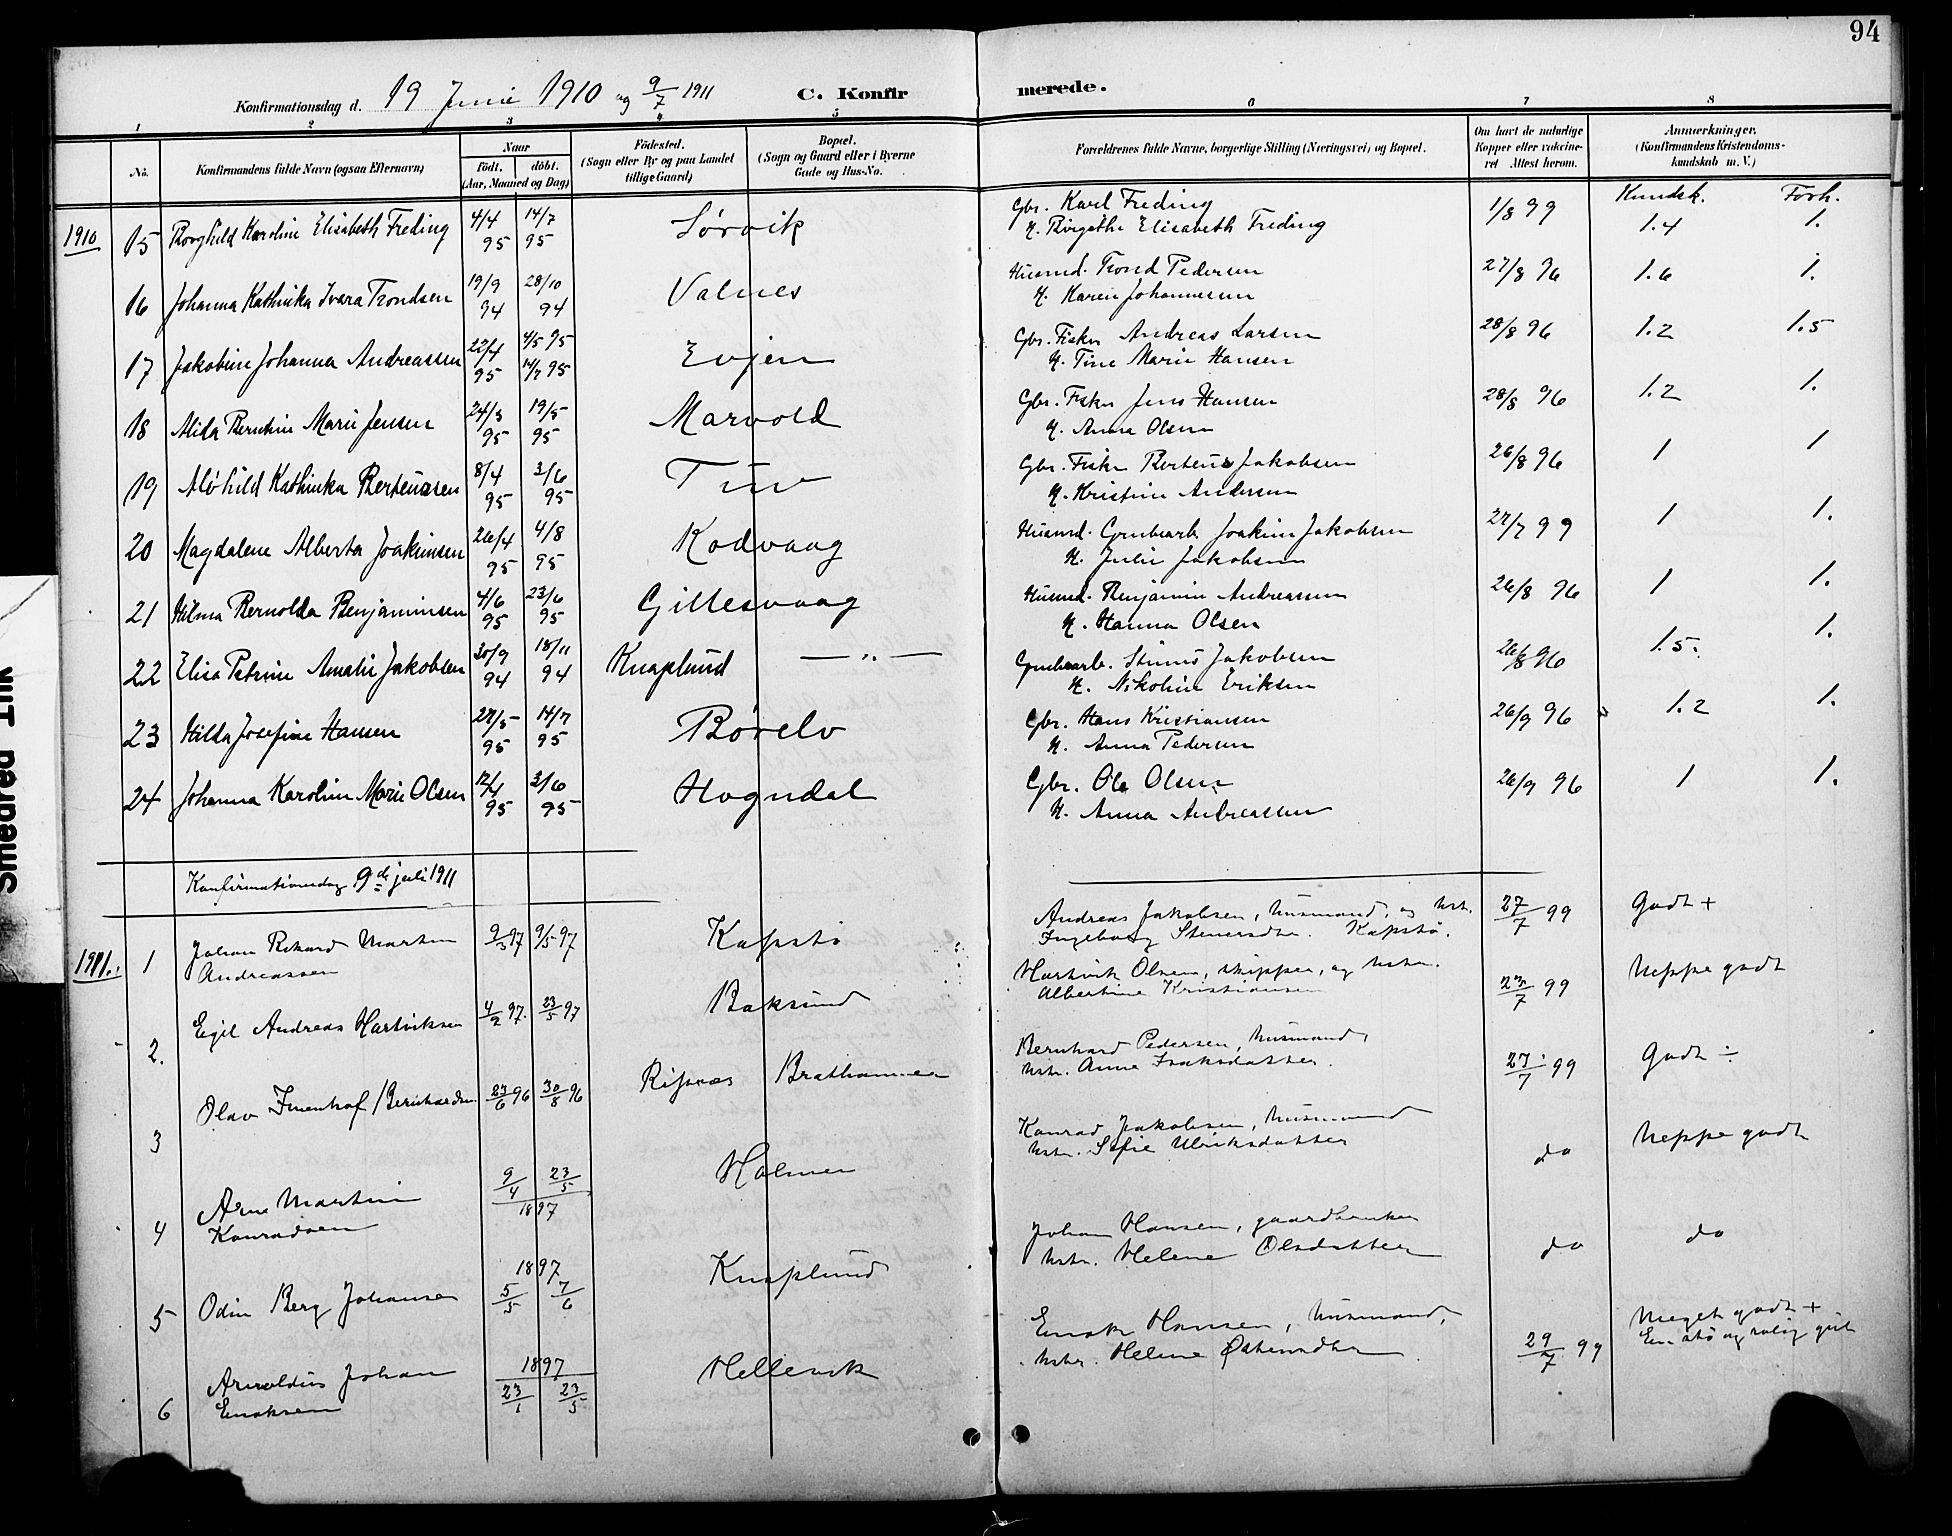 94
Konfirmationsdag d. 19 Juni 1910 og 9/7 1911 C. Konfirmerede.
1 2 3 4 5 6 7 8
No.
Konfirmandens fulde Navn (ogsaa Efternavn)
Naar
født. døbt.
(Aar, Maaned og Dag)
Fødested.
(Sogn eller By og paa Landet
tillige Gaard)
Bopæl.
(Sogn og Gaard eller i Byerne
Gade og Hus-No.
Forældrenes fulde Navne, borgerlige Stilling (Næringsvei) og Bopæl.
Om havt de naturlige
Kopper eller vakcine-
ret Attest herom.
Anmærkninger.
(Konfirmandens Kristendoms-
kundskab m. V.)
Kundsk. Forh.
1910 15 Borghild Karoline Elisabeth Freding 4/4 95 14/7 95 Sørvik Gbr. Karl Freding 1/8 99 1.4 1.
H. Birgithe Elisabeth Freding
16 Johanna Kathinka Ivara Trondsen 19/9 94 28/10 94 Valnes Husmd. Trond Pedersen 27/8 96 1.6 1.
H. Karen Johannesen
17 Jakobine Johanna Andreassen 22/4 95 4/5 95 14/7 95 Evjen Gbr. Fisker Andreas Larsen 28/8 96 1.2 1.5
H. Tine Marie Hansen
18 Alida Berntine Marie Jensen 24/3 95 19/5 95 Marvold Gbr. Fisker Jens Hansen 28/8 96 1.2 1.
H. Anna Olsen
19 Aløhild Kathinka Berteussen 8/4 95 3/6 95 Tuv Gbr. Fisker Berteus Jakobsen 26/8 96 1 1
H. Kristine Andersen
20 Magdalene Alberta Joakimsen 26/4 95 4/8 95 Kodvaag Husmd. Grubearb. Joakim Jakobsen 27/7 99 1 1.
H. Julie Jakobsen
21 Hilma Bernolda Benjaminsen 4/6 95 23/6 95 Gillesvaag Husmd. Benjamin Andreassen 26/8 96 1 1.
H. Hanna Olsen
22 Elisa Petrine Amalie Jakobsen 30/9 94 18/11 94 Knaplund — „ — Grubearb. Jakobsen 26/8 96 1.5. 1.
H. Nikoline Eriksen
23 Hilda Josefine Hansen 27/5 95 14/7 95 Børelv Gbr. Hans Kristiansen 26/9 96 1.2 1.
H. Anna Pedersen
24 Johanna Karoline Marie Olsen 12/4 95 3/6 95 Hogndal Gbr. Ole Olsen 26/9 96 1 1.
H. Anna Andreassen
Konfirmationsdag 9de juli 1911
1911. 1 Johan Rikard Martin 9/3 97 9/5 97 Kapstø Andreas Jakobsen, husmand, og hst. 27/7 99 Godt +
Andreassen Ingeborg Steversdtr. Kapstø.
2. Egil Andreas Hartviksen 4/2 97. 23/5 97 Baksund Hartvik Olsen, skipper, og hstr. 27/7 99 Neppe godt
Albertine Kristiansen
3 Olav Bernhardsen 23/6 96 30/8 96 Risnes Brathammer Bernhard Pedersen, husmand, 27/7 99 Godt ÷
hstr. Anne Isaksdatter.
4 Arne Martin 9/4 23/5 1897 Holmen Konrad Jakobsen, husmand do Neppe godt
Konradsen hstr. Sofie Ulriksdatter
5 Odin Berg Johansen 1897 5/5 7/6 Knaplund Johan Hansen, gaardbruker do do
hstr. Helene Olsdatter
6 Arnoldus Johan 1897 23/1 23/5 Hellevik Enok Hansen, husmand, 29/7 99 Meget godt +
Enoksen hstr. Helene En stø og rolig gut